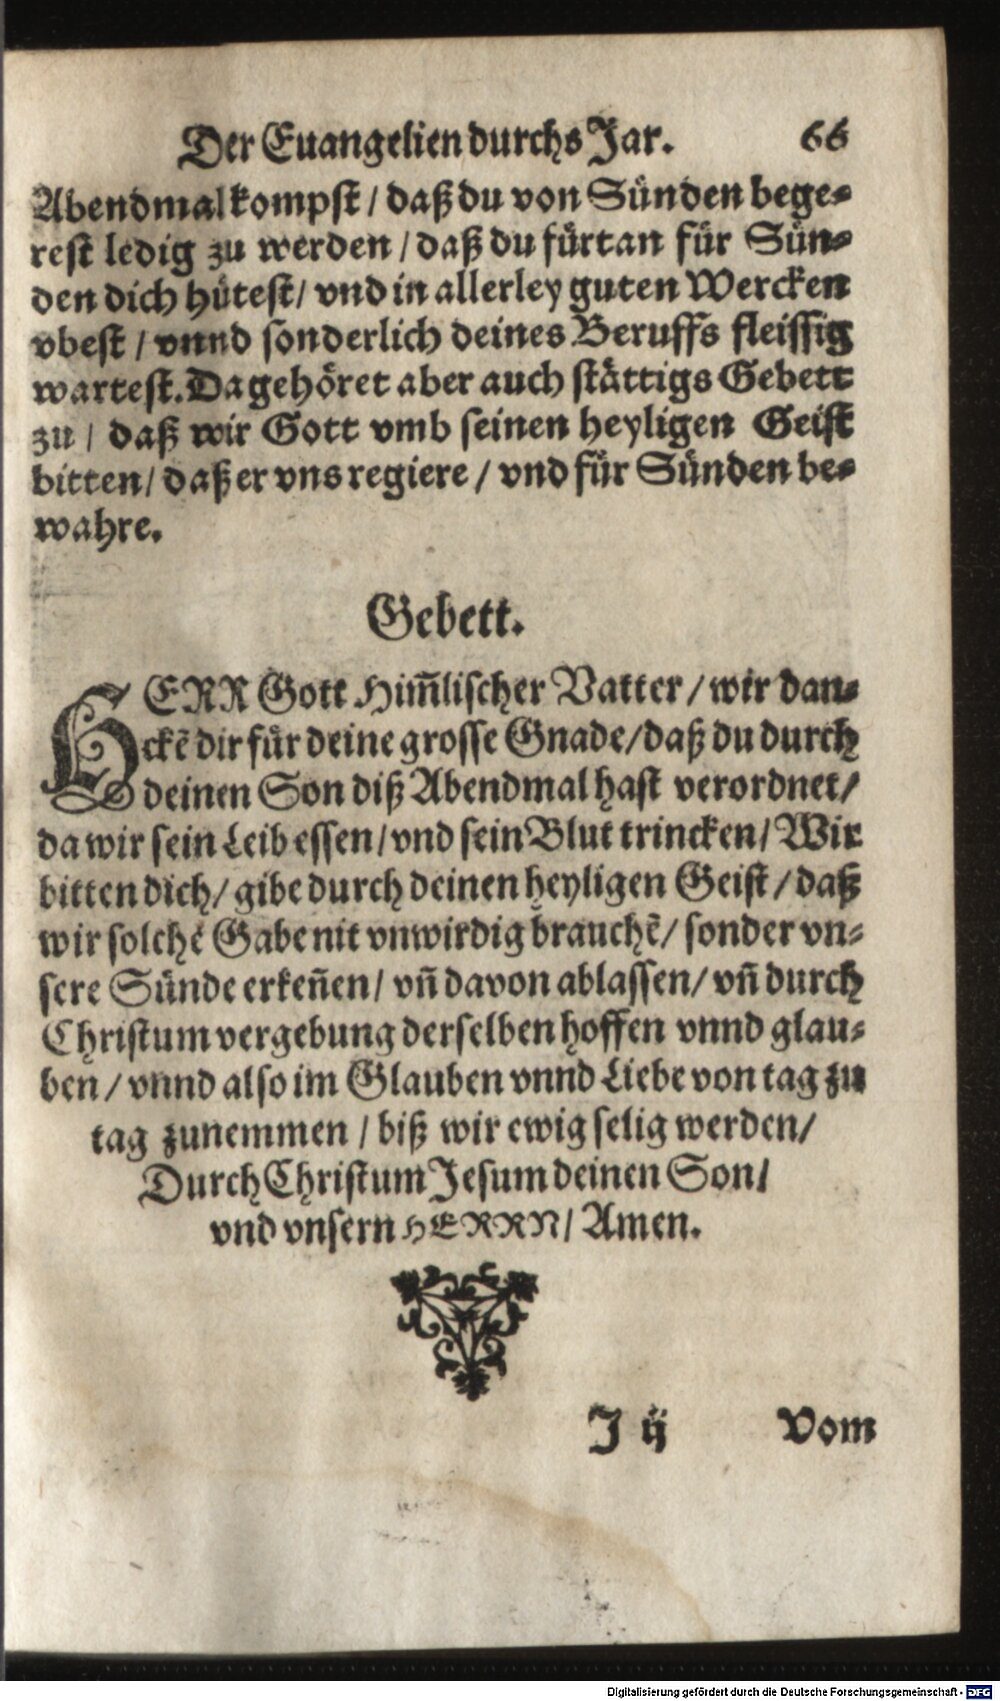 Der Euangelien durchs Jar. 66
Abendmal kompst / daß du von Sünden bege-
rest ledig zu werden / daß du fürtan für Sün-
den dich hütest / vnd in allerley guten Wercken
vbest / vnnd sonderlich deines Beruffs fleissig
wartest. Da gehöret aber auch stättigs Gebett
zu / daß wir Gott vmb seinen heyligen Geist
bitten / daß er vns regiere / vnd für Sünden be-
wahre.
Gebett.
HERR Gott Him̃lischer Vatter / wir dan-
ckẽ dir für deine grosse Gnade / daß du durch
deinen Son diß Abendmal hast verordnet /
da wir sein Leib essen / vnd sein Blut trincken / Wir
bitten dich / gibe durch deinen heyligen Geist / daß
wir solchẽ Gabe nit vnwirdig brauchẽ / sonder vn-
sere Sünde erkeñen / vñ davon ablassen / vñ durch
Christum vergebung derselben hoffen vnnd glau-
ben / vnnd also im Glauben vnnd Liebe von tag zu
tag zunemmen / biß wir ewig selig werden /
Durch Christum Jesum deinen Son /
vnd vnsern HERRN / Amen.
J ij Vom
Digitalisierung gefördert durch die Deutsche Forschungsgemeinschaft - DFG